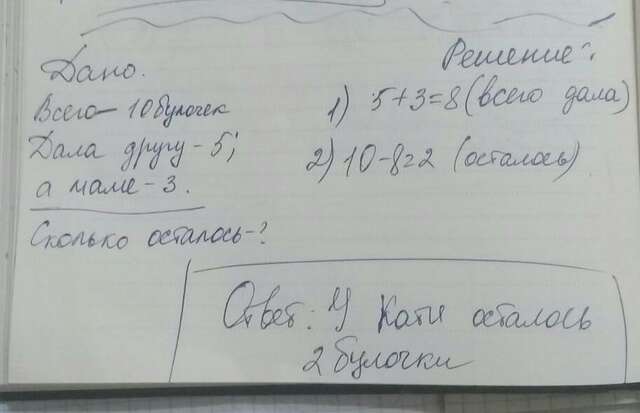 Дано.
Всего – 10 булочек
Дала другу – 5;
а маме – 3.
Сколько осталось – ?
Решение:
1) 5+3=8 (всего дала)
2) 10-8=2 (осталось)
Ответ: У Кати осталось
2 булочки